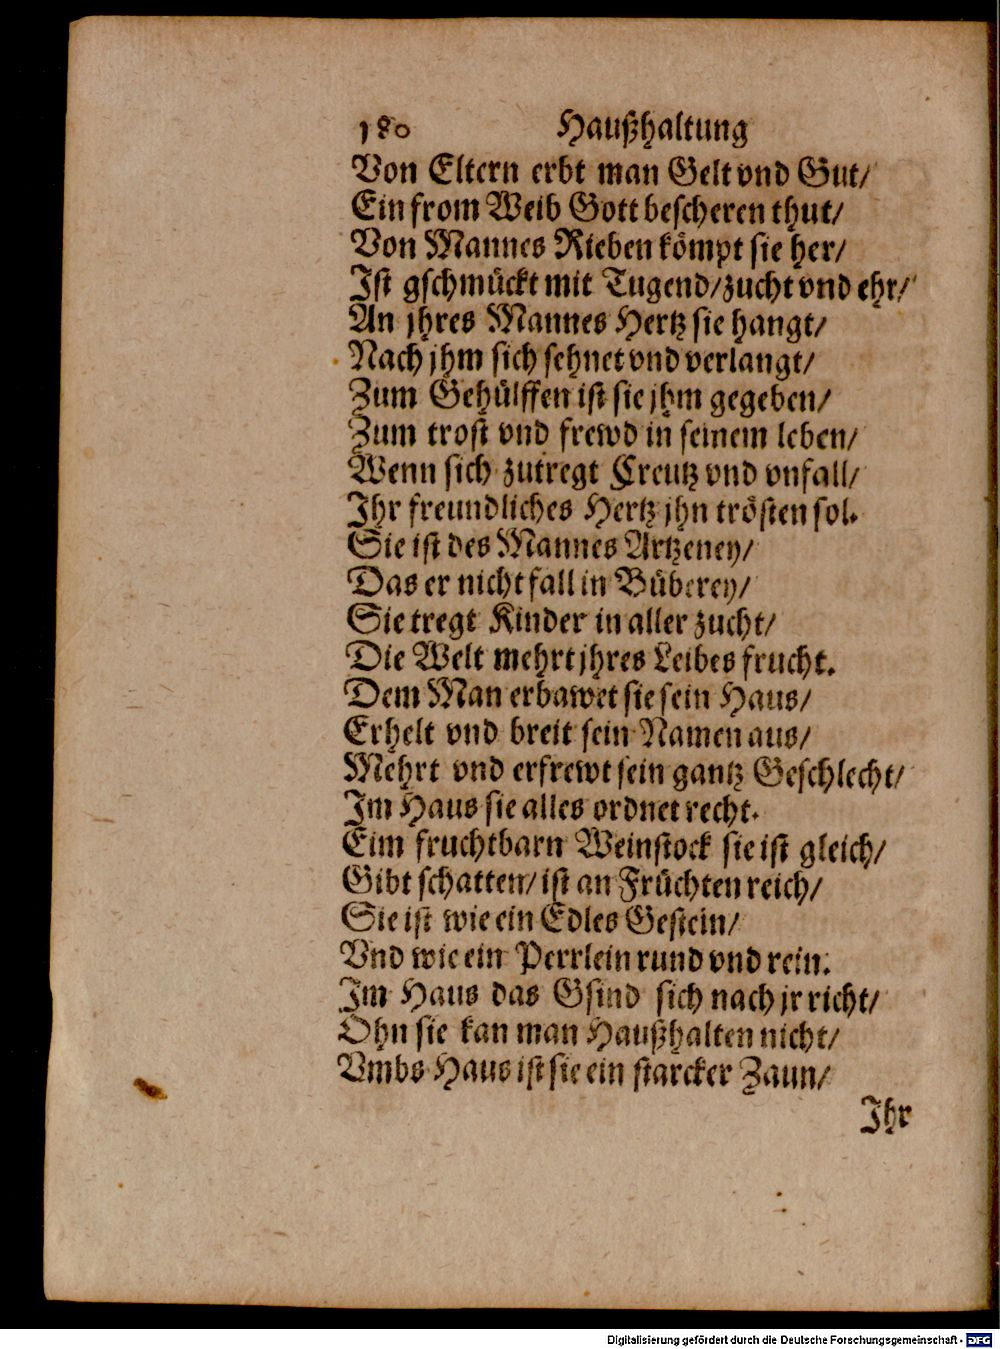 180 Haußhaltung
Von Eltern erbt man Gelt vnd Gut/
Ein from Weib Gott bescheren thut/
Von Mannes Rieben kömpt sie her/
Ist gschmückt mit Tugend/zucht vnd ehr/
An jhres Mannes Hertz sie hangt/
Nach jhm sich sehnet vnd verlangt/
Zum Gehülffen ist sie jhm gegeben/
Zum trost vnd frewd in seinem leben/
Wenn sich zutregt Creutz vnd vnfall/
Ihr freundliches Hertz jhn trösten sol.
Sie ist des Mannes Artzeney/
Das er nicht fall in Büberey/
Sie tregt Kinder in aller zucht/
Die Welt mehrt jhres Leibes frucht.
Dem Man erbawet sie sein Haus/
Erhelt vnd breit sein Namen aus/
Mehrt vnd erfrewt sein gantz Geschlecht/
Im Haus sie alles ordnet recht.
Eim fruchtbarn Weinstock sie ist gleich/
Gibt schatten/ist an Früchten reich/
Sie ist wie ein Edles Gestein/
Vnd wie ein Perrlein rund vnd rein.
Im Haus das Gsind sich nach jr richt/
Ohn sie kan man Haußhalten nicht/
Vmbs Haus ist sie ein starcker Zaun/
Ihr
Digitalisierung gefördert durch die Deutsche Forschungsgemeinschaft - DFG